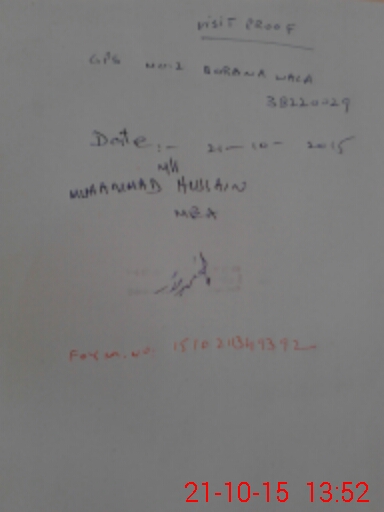 VISIT PROOF
GPS NO:2 BORANA WALA
38220029
Date:- 21-10-2015
MH
MUHAMMAD HUSSAIN
MEA
Form.NO:
21-10-15 13:52